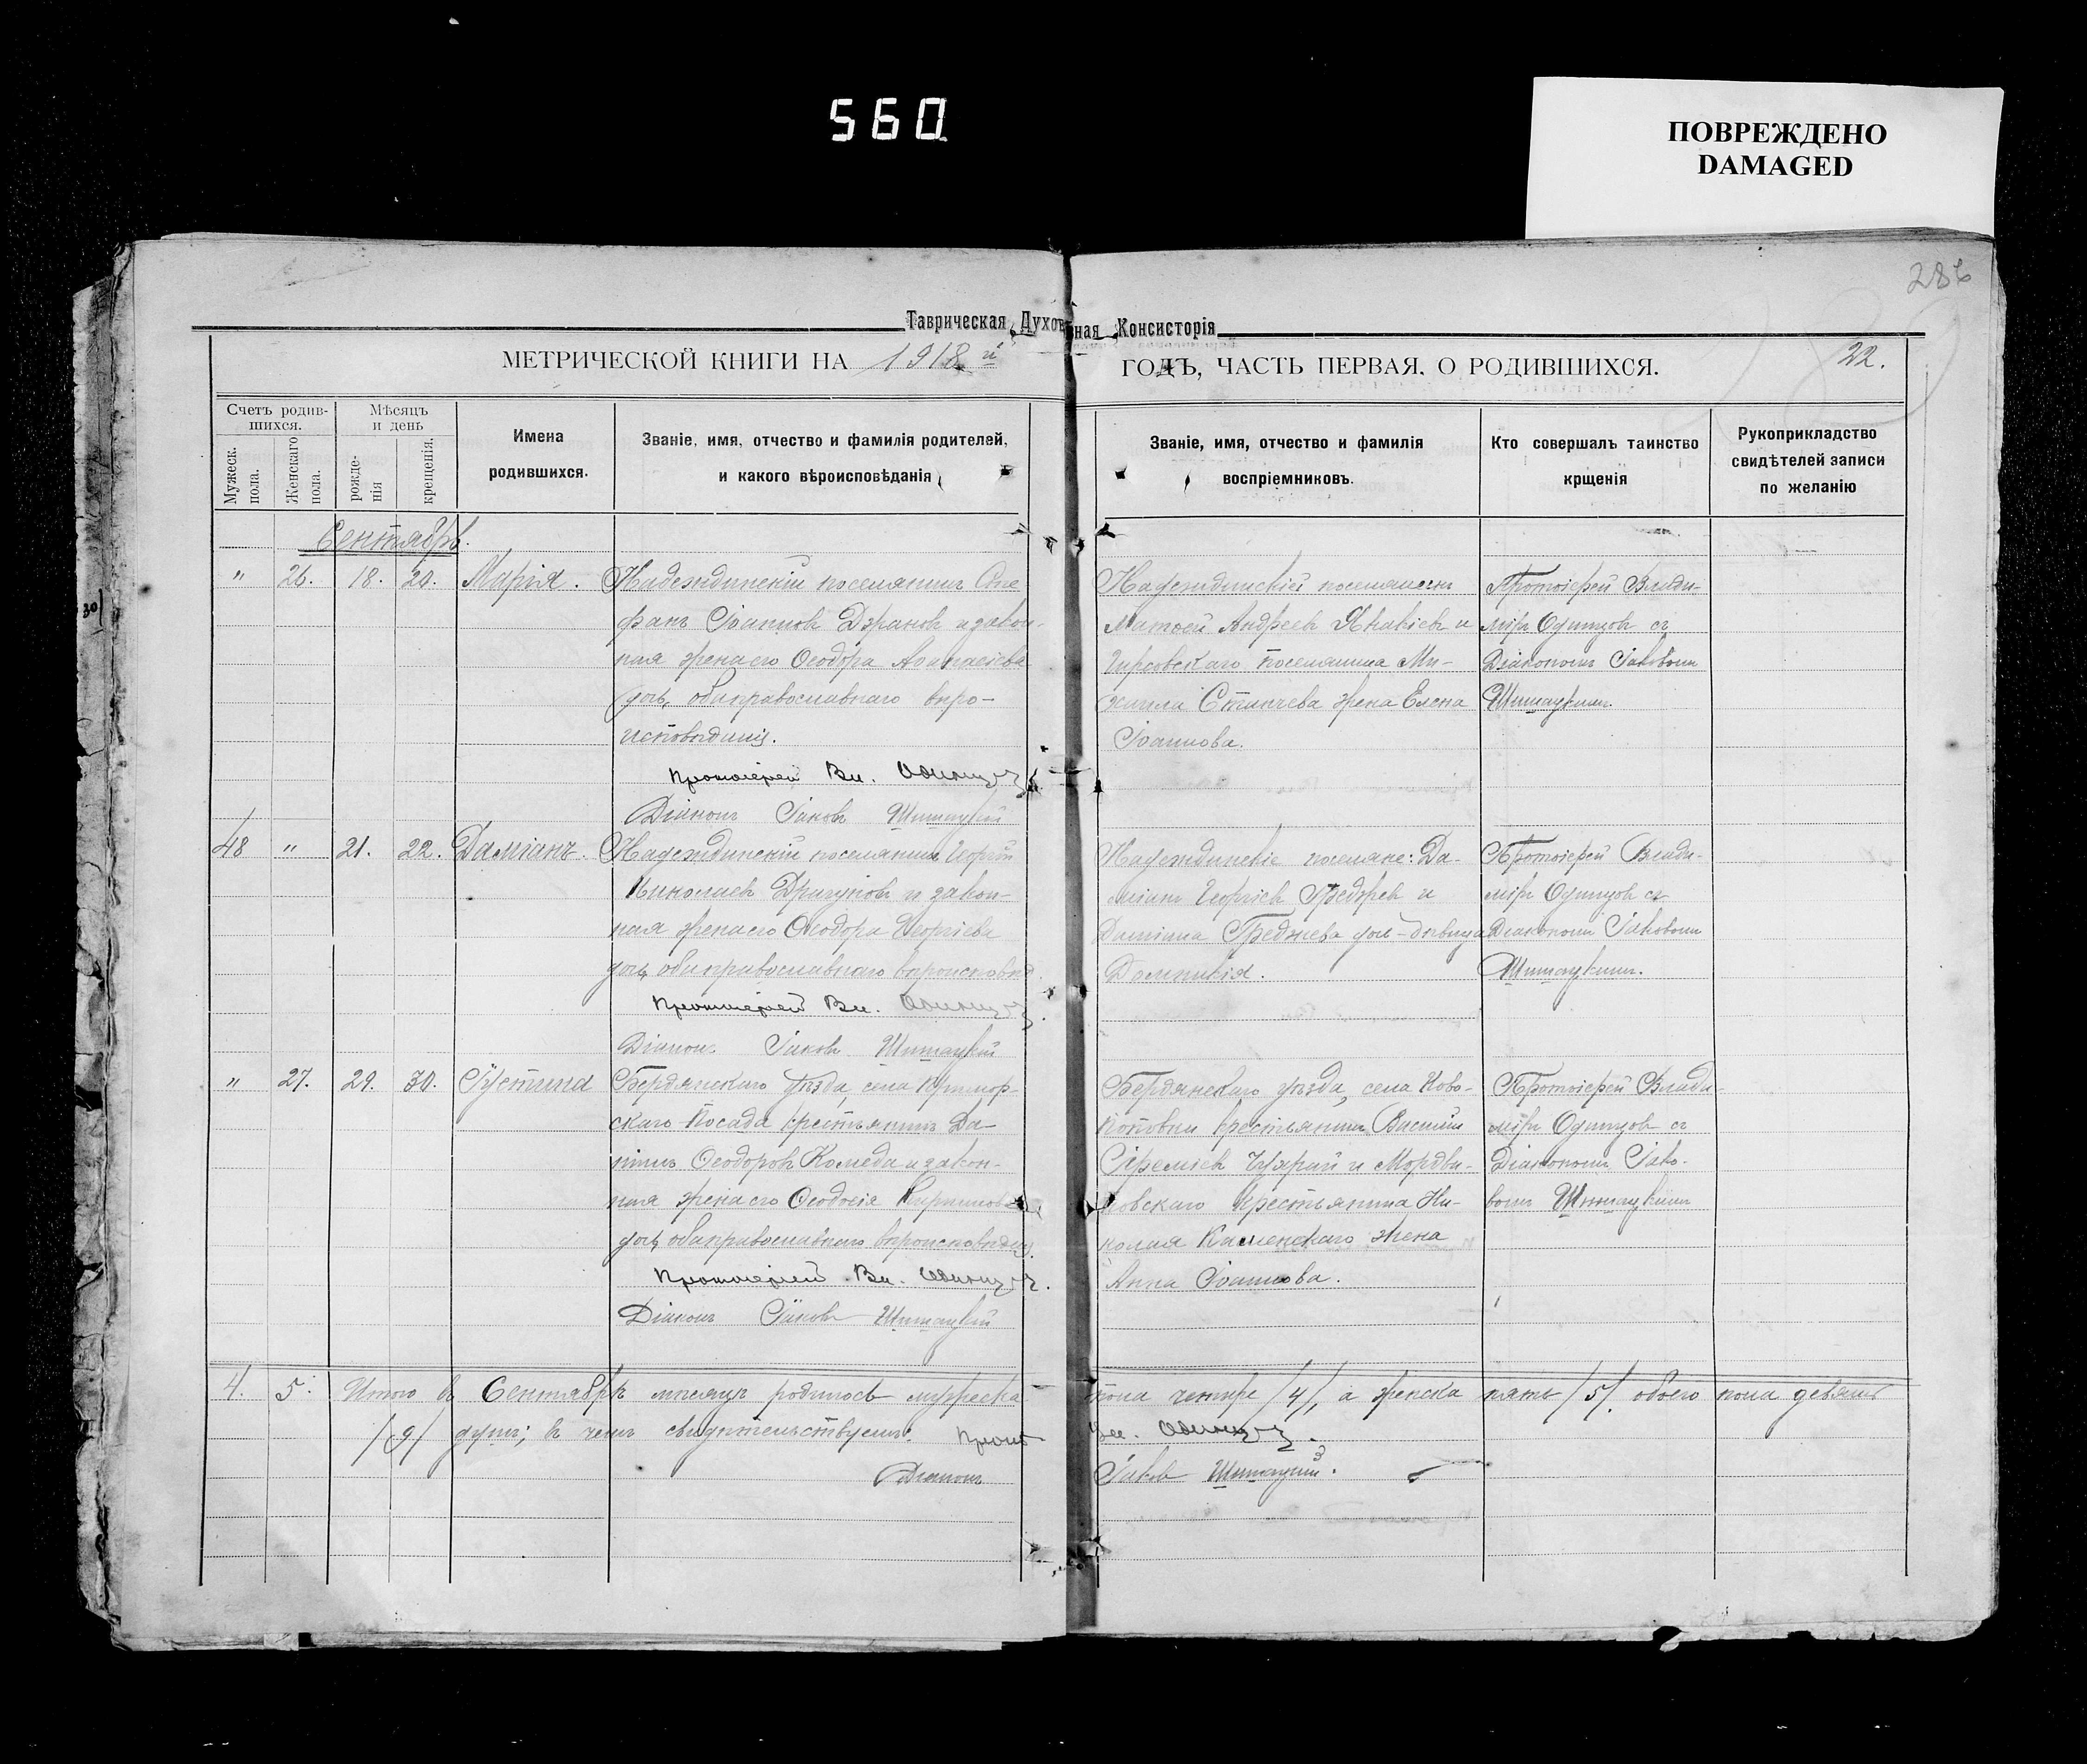 560
ПОВРЕЖДЕНО
DAMAGED
286
Таврическая Духовная Консисторія
МЕТРИЧЕСКОЙ КНИГИ НА 1918 й ГОДЪ, ЧАСТЬ ПЕРВАЯ, О РОДИВШИХСЯ. 22.
Счетъ родив-
шихся.
Мужеск. пола.
Женскаго пола.
Мѣсяцъ
и день
рожде-
нія
крещенія.
Имена
родившихся.
Званіе, имя, отчество и фамилія родителей,
и какого вѣроисповѣданія
Званіе, имя, отчество и фамилія
воспріемниковъ.
Кто совершалъ таинство
крщенія
Рукоприкладство
свидѣтелей записи
по желанію
Сентябрь.
" 26. 18. 20. Марія.
Надеждинскій поселянинъ Сте-
фанъ Іоанновъ Драновъ и закон-
ная жена его Ѳеодора Аѳанасіева
дочь, оба православнаго вѣро-
исповѣданія.
Протоіерей Вл. Одинцовъ
Діаконъ Іаковъ Шишацкій
Надеждинскій поселянинъ
Матѳей Андреевъ и
поселянина Ми-
хаила Станчева жена Елена
Іоаннова.
Протоіерей Влади-
міръ Одинцовъ съ
Діакономъ Іаковомъ
Шишацкимъ.
48 " 21. 22. Даміанъ.
Надеждинскій поселянинъ Георгій
Николаевъ Драгуновъ и закон-
ная жена его Ѳеодора Георгіева
дочь, оба православнаго вѣроисповѣд.
Протоіерей Вл. Одинцовъ.
Діаконъ Іаковъ Шишацкій
Надеждинскіе поселяне: Да-
міанъ Георгіевъ и
Даміана дочь-дѣвица
Домникія.
Протоіерей Влади-
міръ Одинцовъ съ
Діакономъ Іаковомъ
Шишацкимъ.
" 27. 29. 30. Іустина
Бердянскаго уѣзда, села Примор-
скаго Посада крестьянинъ Да-
ніилъ Ѳеодоровъ Комеда и закон-
ная жена его Ѳеодосія Кириллова
дочь, оба православнаго вѣроисповѣдан.
Протоіерей Вл. Одинцовъ.
Діаконъ Іаковъ Шишацкій
Бердянскаго уѣзда, села Ново-
крестьянинъ Василій
Іереміевъ и Мордви-
новскаго крестьянина Ни-
колая Каменскаго жена
Анна Іоаннова.
Протоіерей Влади-
міръ Одинцовъ съ
Діакономъ Іако-
вомъ Шишацкимъ
4. 5. Итого въ Сентябрѣ мѣсяцѣ родилось мужеска пола четыре /4/, а женска пять /5/. обоего пола девять
/9/ душъ; въ чемъ свидѣтельствуемъ: Прот. Вл. Одинцовъ.
Діаконъ Іаковъ Шишацкій.